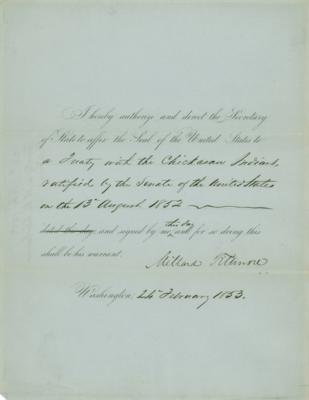 I hereby authorize and direct the Secretary
of State to affix the Seal of the United States to
a Treaty with the Chickasaw Indians,
ratified by the Senate of the United States
on the 13th August 1852
this day
dated this day, and signed by me, and for so doing this
shall be his warrant.
Millard Fillmore
Washington, 24 February 1853.